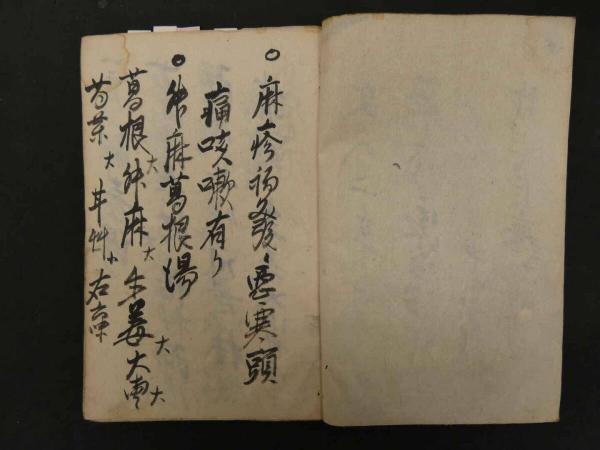 ○麻疹初發悪寒頭
痛咳嗽有り
○升麻葛根湯
葛根大升麻大生姜大大棗大
芍薬大甘艸小右煎